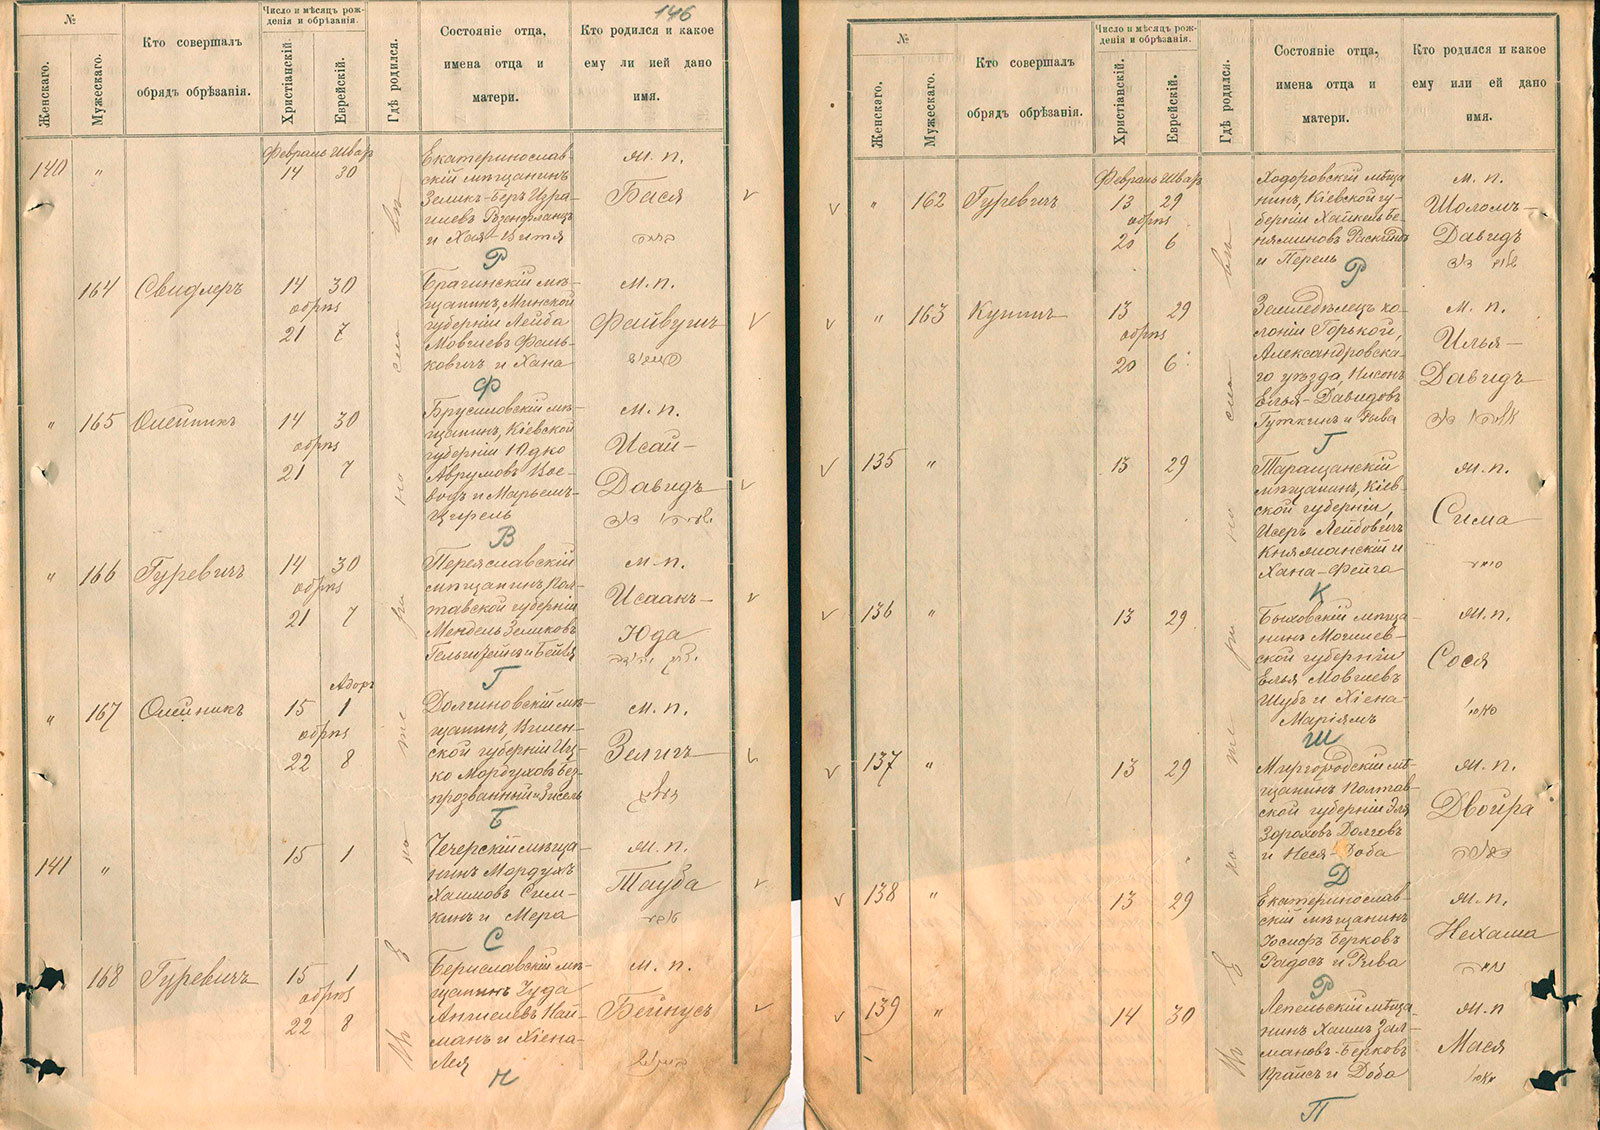 146
№
Женскаго.
Мужескаго.
Кто совершалъ
обрядъ обрѣзанія.
Число и мѣсяцъ рож-
денія и обрѣзанія.
Христіанскій.
Еврейскій.
Гдѣ родился.
Состояніе отца,
имена отца и
матери.
Кто родился и какое
ему ли ней дано
имя.
140 "
Февраль Шватъ
14 30
Екатеринослав
скій мѣщанинъ
Зеликъ-Беръ Изра
илевъ
и Хая-
м. п.
Бася
Р
164 Свидлеръ
14 30
обрѣз
21 7
Брагинскій мѣ-
щанинъ, Минской
губерніи Лейба
Мовшевъ Фаль-
ковичъ и Хана
м. п.
Файвушъ
Ф
" 165 Олейникъ
14 30
обрѣз
21 7
Брусиловскій мѣ-
щанинъ, Кіевской
губерніи Юдко
Аврумовъ
и Марьемъ-
м. п.
Исай-
Давидъ
В
" 166 Гуревичъ
14 30
обрѣз
21 7
Переяславскій
мѣщанинъ, Пол-
тавской губерніи
Мендель Зеликовъ
и Бейля
м. п.
Исаакъ-
Юда
Г
" 167 Олейникъ
Адоръ
15 1
обрѣз
22 8
Долгиновскій мѣ-
щанинъ, Вилен-
ской губерніи Иц-
ко Мордуховъ Без-
прозванный и Зисель
м. п.
Зеликъ
Б
141 "
15 1
Чечерскій мѣща-
нинъ Мордухъ
Хаимовъ Сим-
кинъ и Мера
м. п.
Тауба
С
168 Гуревичъ
15 1
обрѣз
22 8
Бериславскій мѣ-
щанинъ Іуда
Най-
манъ и Хіена-
Лея
м. п.
Бейнусъ
Н
№
Женскаго.
Мужескаго.
Кто совершалъ
обрядъ обрѣзанія.
Число и мѣсяцъ рож-
денія и обрѣзанія.
Христіанскій.
Еврейскій.
Гдѣ родился.
Состояніе отца,
имена отца и
матери.
Кто родился и какое
ему или ей дано
имя.
" 162 Гуревичъ
Февраль Шватъ
13 29
обрѣз
20 6
Ходоровскій мѣща
нинъ, Кіевской гу-
берніи Хайкель Бе-
няминовъ
и Перель
м. п.
Шоломъ-
Давидъ
Р
" 163 Купинъ
13 29
обрѣз
20 6
Земледѣлецъ ко-
лоніи Горькой,
Александровска-
го уѣзда, Нисонъ
Елья-Давидовъ
Гуткинъ и Рыва
м. п.
Илья-
Давидъ
Г
135 "
13 29
Таращанскій
мѣщанинъ, Кіев-
ской губерніи,
Исеръ Лейбовичъ
Княжанскій и
Хана-Фейга
м. п.
Сима
К
136 "
13 29
Быховскій мѣща
нинъ Могилев-
ской губерніи
Елья Мовшевъ
Шубъ и Хіена-
Маріямъ
м. п.
Сося
Ш
137 "
13 29
Миргородскій мѣ-
щанинъ Полтав-
ской губерніи Эля
Зораховъ Долговъ
и Неся-Доба
м. п.
Двойра
Д
138 "
13 29
Екатеринослав-
скій мѣщанинъ
Іосифъ Берковъ
Радосъ и Рыва
м. п.
Нехама
Р
139 "
14 30
Лепельскій мѣща
нинъ Хаимъ Зал-
мановъ-Берковъ
и Доба
м. п
Мася
П